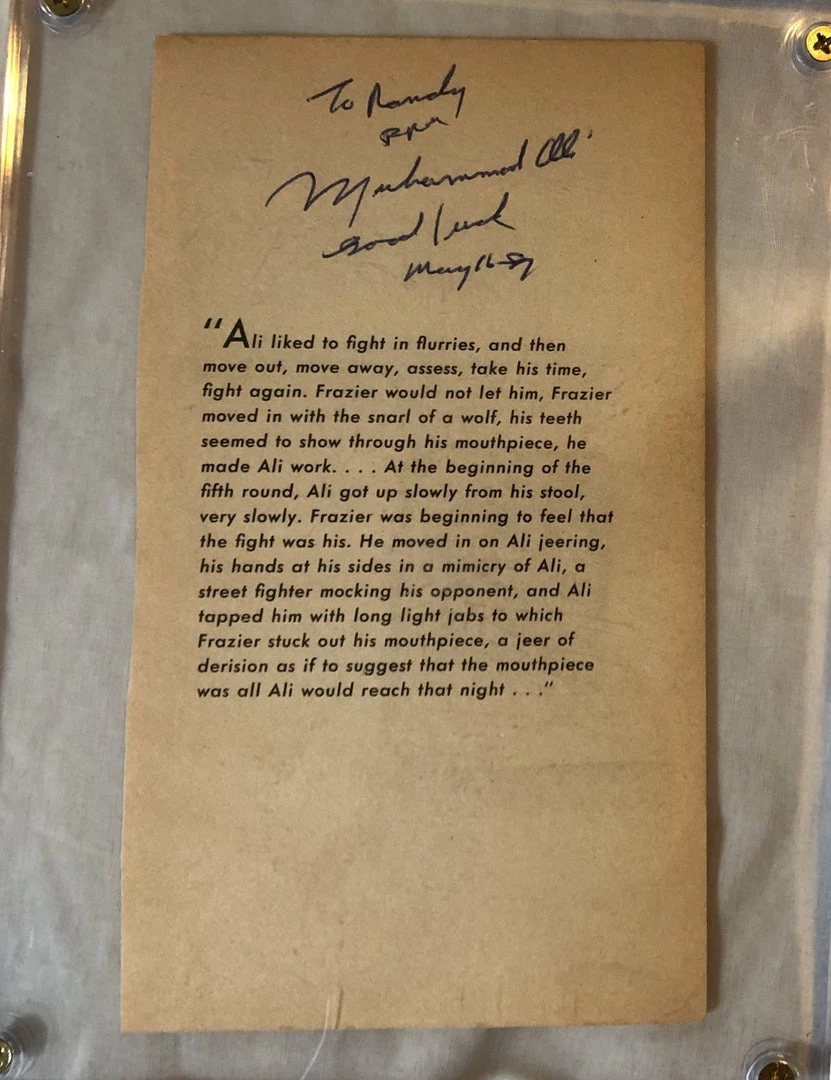 To Randy
from
Muhammad Ali
good luck
May 16-87
“Ali liked to fight in flurries, and then
move out, move away, assess, take his time,
fight again. Frazier would not let him, Frazier
moved in with the snarl of a wolf, his teeth
seemed to show through his mouthpiece, he
made Ali work. . . . At the beginning of the
fifth round, Ali got up slowly from his stool,
very slowly. Frazier was beginning to feel that
the fight was his. He moved in on Ali jeering,
his hands at his sides in a mimicry of Ali, a
street fighter mocking his opponent, and Ali
tapped him with long light jabs to which
Frazier stuck out his mouthpiece, a jeer of
derision as if to suggest that the mouthpiece
was all Ali would reach that night . . .”